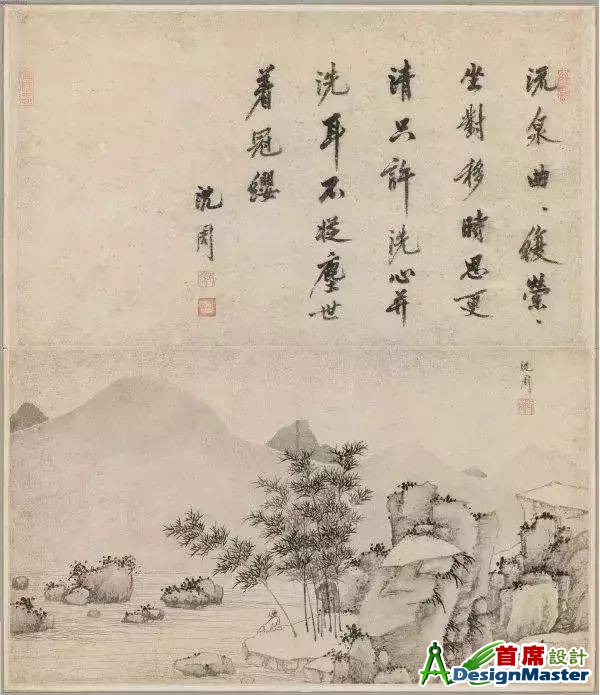 流泉曲、復縈、
坐對移時思更
清只許洗心并
洗耳不從塵世
着冠纓
沈周
沈周
首席設計
DesignMaster